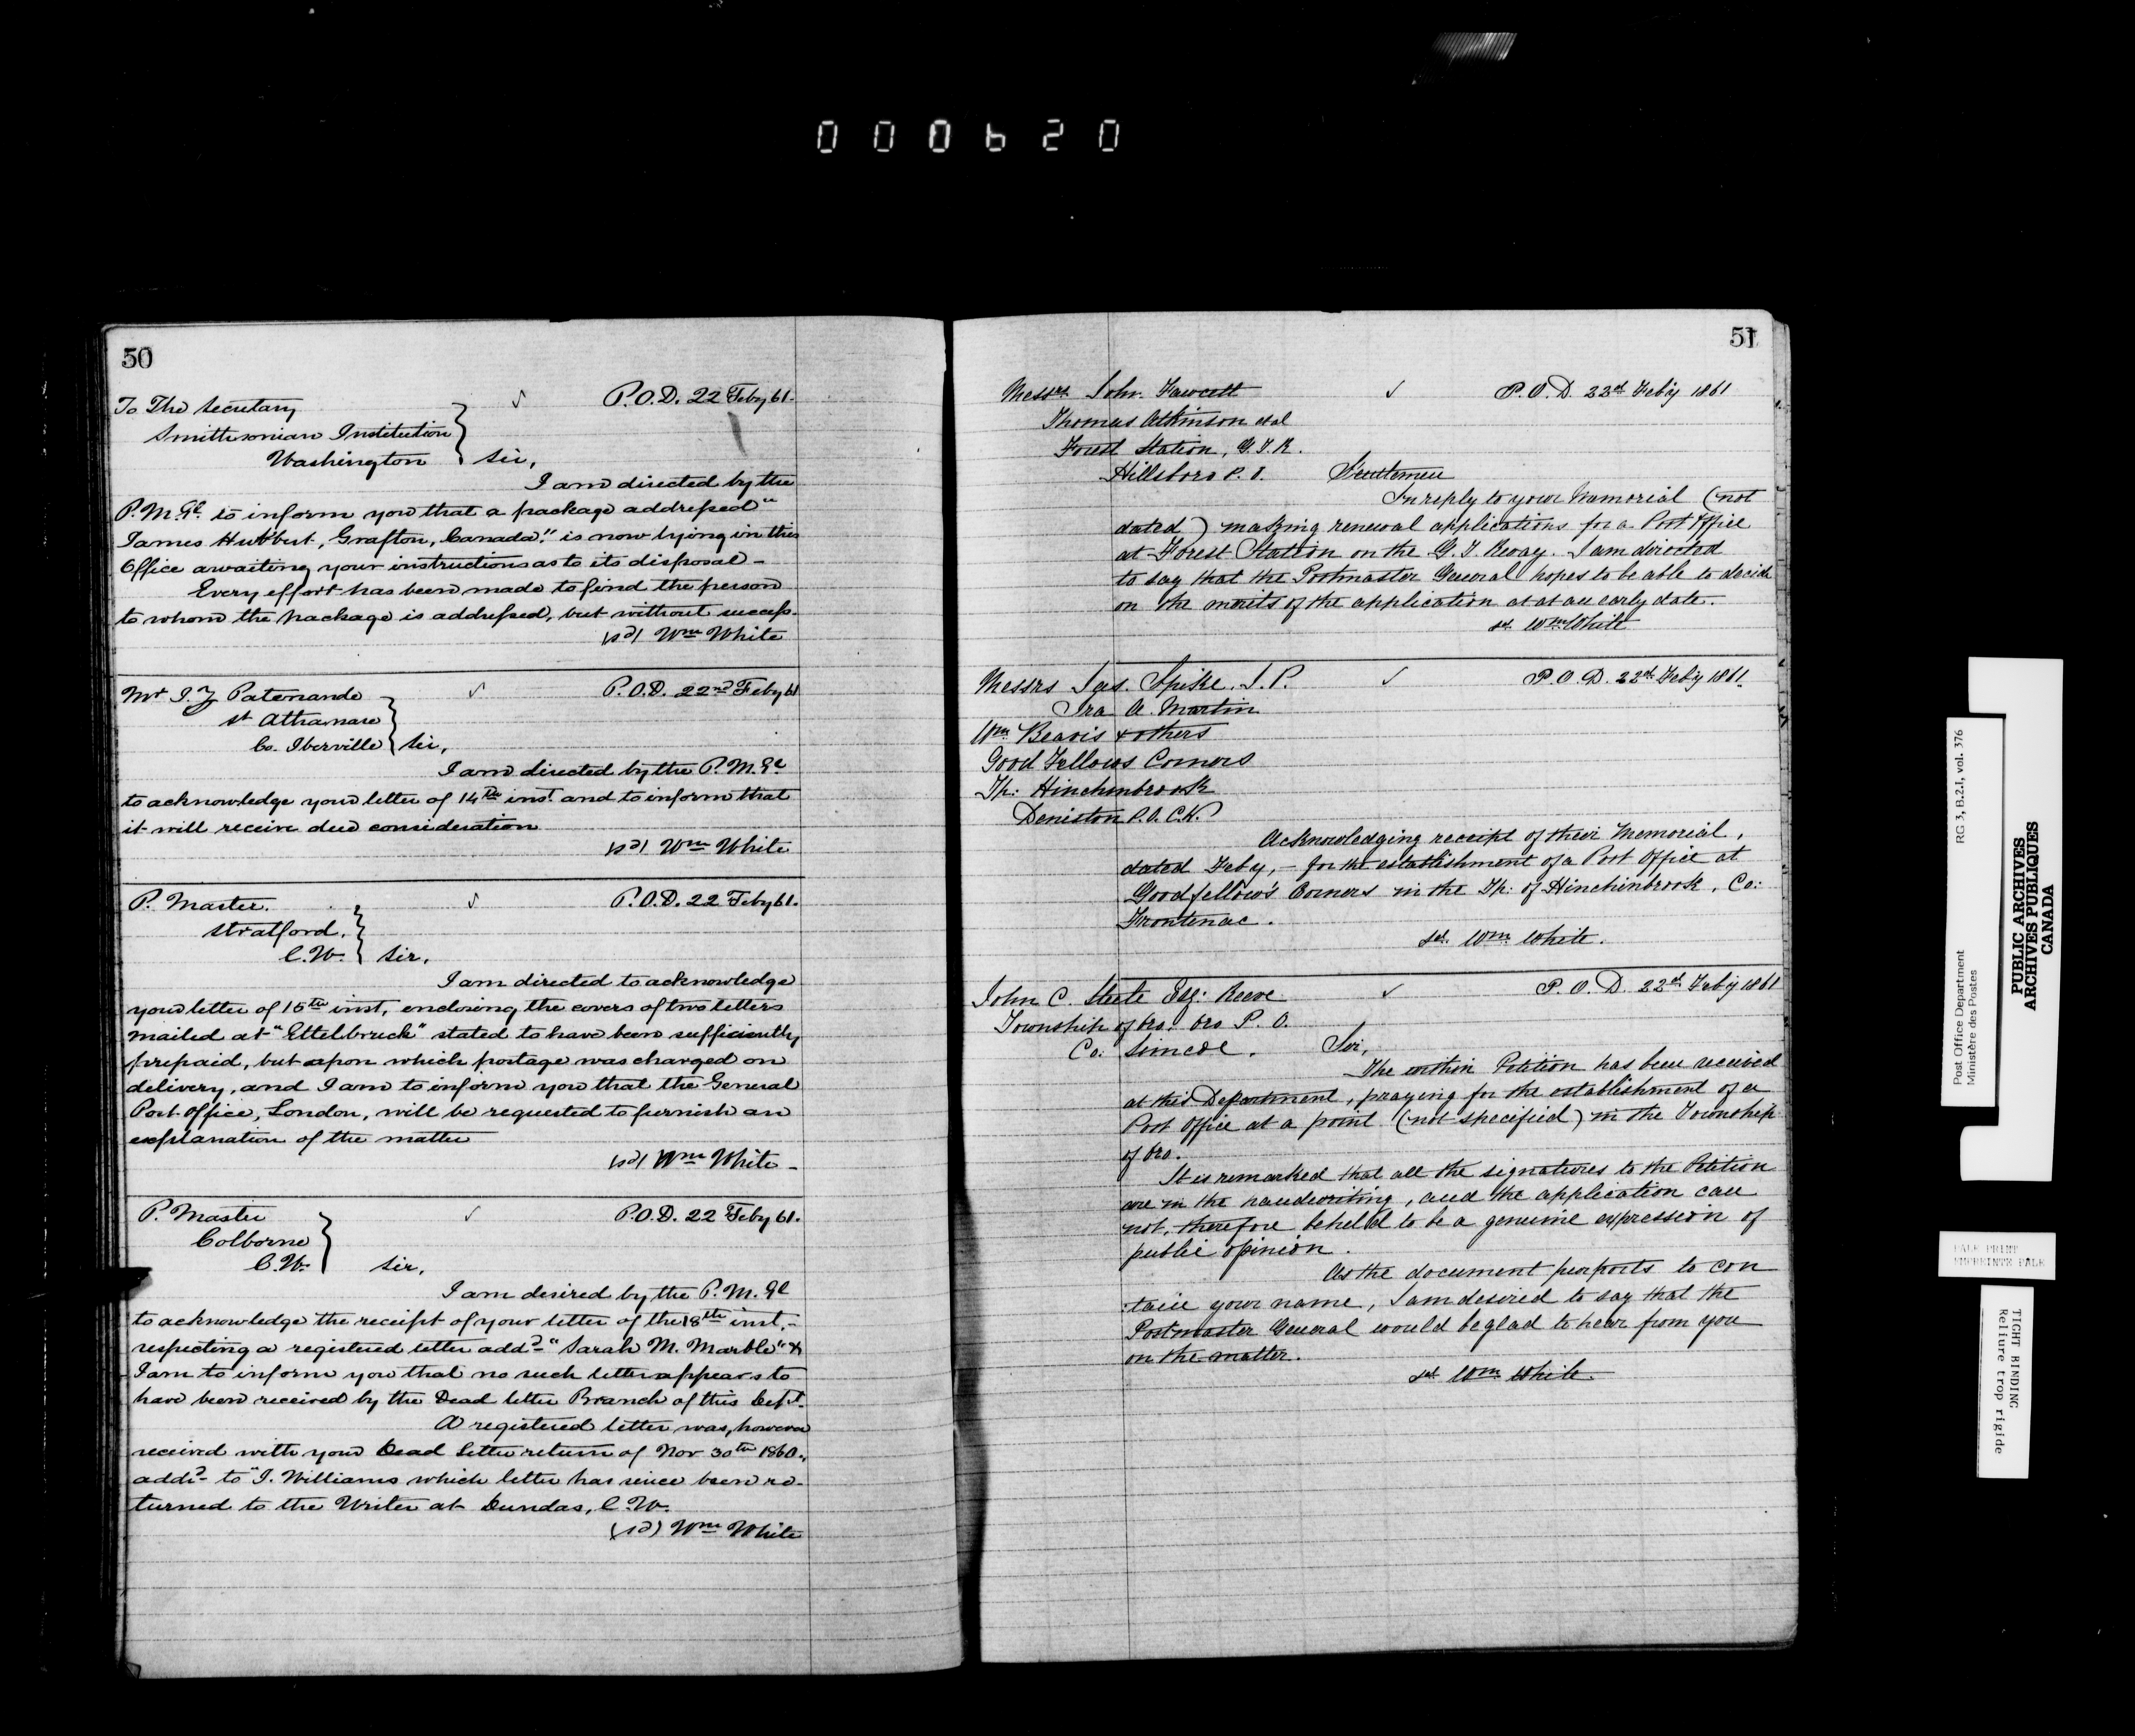 000620
50
To The Secretary
Smithsonian Institution
Washington
P.O.D. 22 Feby 61.
Sir,
I am directed by the
P.M.Gl. to inform you that a package addressed "
James Hubbert, Grafton, Canada." is now lying in this
Office awaiting your instructions as to its disposal -
Every effort has been made to find the person
to whom the package is addressed, but without success.
(sd) Wm White
Mr I. Z Patenande
St Athanase
Co. Iberville
P.O.D. 22nd Feby 61
Sir,
I am directed by the P.M.Gl
to acknowledge your letter of 14th inst. and to inform that
it will receive due consideration
(sd) Wm White
P. Master.
Stratford.
C.W.
P.O.D. 22 Feby 61.
Sir,
I am directed to acknowledge
your letter of 15th inst, enclosing the covers of two letters
mailed at "Ettelbruck" stated to have been sufficiently
prepaid, but upon which postage was charged on
delivery, and I am to inform you that the General
Post Office, London, will be requested to furnish an
explanation of the matter
(sd) Wm White -
P. Master
Colborne
C.W.
P.O.D. 22 Feby 61.
Sir,
I am desired by the P.M.Gl
to acknowledge the receipt of your letter of the 18th inst,-
respecting a registered letter addd - "Sarah M. Marble" &
I am to inform you that no such letter appears to
have been received by the Dead letter Branch of this Dept.
A registered letter was, however
received with your Dead letter return of Nov 30th 1860.,
addd - to "J. Williams which letter has since been re-
turned to the Writer at Dundas, C.W.
(sd) Wm White
51
Messrs. John. Fawcett
Thomas Atkinson et al
Forest Station, G.T.R.
Hillsboro P.O.
P.O.D. 22d Feb'y 1861
Gentlemen
In reply to your Memorial (not
dated) making renewal applications for a Post Office
at Forest Station on the G.T. Rway. I am directed
to say that the Postmaster General hopes to be able to decide
on the merits of the application at at an early date.
sd. Wm White
Messrs Jas. Spike, J.P.
Ira A. Martin
Wm. Beavis & others
Good Fellows Corners
Tp: Hinchinbrook
Deniston P.O. C.W.
P.O.D. 22d Feb'y 1861.
Acknowledging receipt of their Memorial,
dated Feby, - for the establishment of a Post Office at
Goodfellow's Corners in the Tp: of Hinchinbrook, Co:
Frontenac.
sd. Wm. White.
John C. Steele Esq: Reeve
Township of Oro. Oro P.O.
Co: Simcoe.
P.O.D. 22d Feb'y 1861
Sir,
The within Petition has been received
at this Department, praying for the establishment of a
Post Office at a point (not specified) in the Township
of Oro.
It is remarked that all the signatures to the Petition
are in the handwriting, and the application can
not, therefore be held to be a genuine expression of
public opinion.
As the document purports to con
:tain your name, I am desired to say that the
Postmaster General would be glad to hear from you
on the matter.
sd. Wm. White.
Post Office Department
Ministère des Postes
RG 3, B.2.1, vol. 376
PUBLIC ARCHIVES
ARCHIVES PUBLIQUES
CANADA
PALE PRINT
EMPREINTE PALE
TIGHT BINDING
Reliure trop rigide